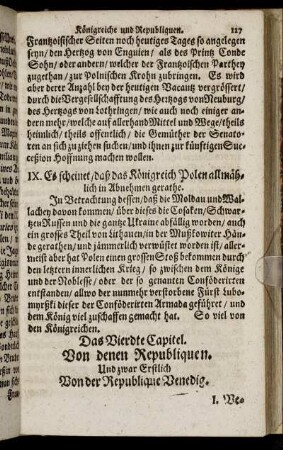 Königreiche und Republiquen. 127
Frantzoistscher Seiten noch heutiges Tages so angelegen
seyn/ den Hertzog von Enguien/ als des Printz Conde
Sohn/ oder andern/ welcher der Frantzoischen Parthey
zugethan/ zur Polnischen Krohn zubringen. Es wird
aber dere Anzahl bey der heutigen Vacantz vergrössert/
durch die Vorgesellschafftung des Hertzogs von Neuburg/
des Hertzogs von Lothringen/ wie auch noch einiger an-
derer mehr/ welche auf allerhand Mittel und Wege/ theils
heimlich/ theils offentlich/ die Gemüther der Senato-
ren an sich zu ziehen suchen/ und ihnen zur künftigen Suc-
ceßion Hoffnung machen wollen.
IX. Es scheinet/ daß das Königreich Polen allmäh-
lich in Abnehmen gerathe.
In Betrachtung dessen/ daß die Moldau und Wal-
lachey davon kommen/ über dieses die Cosaken/ Schwar-
tzen Russen und die gantze Ukraine abfällig worden/ auch
ein grosses Theil von Litthauen/ in der Mußkowiter Hän-
de gerathen/ und jämmerlich verwüstet worden ist/ aller-
meist aber hat Polen einen grossen Stoß bekommen durch
den letztern innerlichen Krieg/ so zwischen dem Könige
und der Noblesse/ oder der so genanten Confoderirten
entstanden/ allwo der nunmehr verstorbene Fürst Lubo-
myrski dieser der Confoderirten Armada geführet/ und
dem König viel zuschaffen gemacht hat. So viel von
den Königreichen.
Das Vierdte Capitel.
Von denen Republiquen.
Und zwar Erstlich
Von der Republique Venedig.
I. Ve-